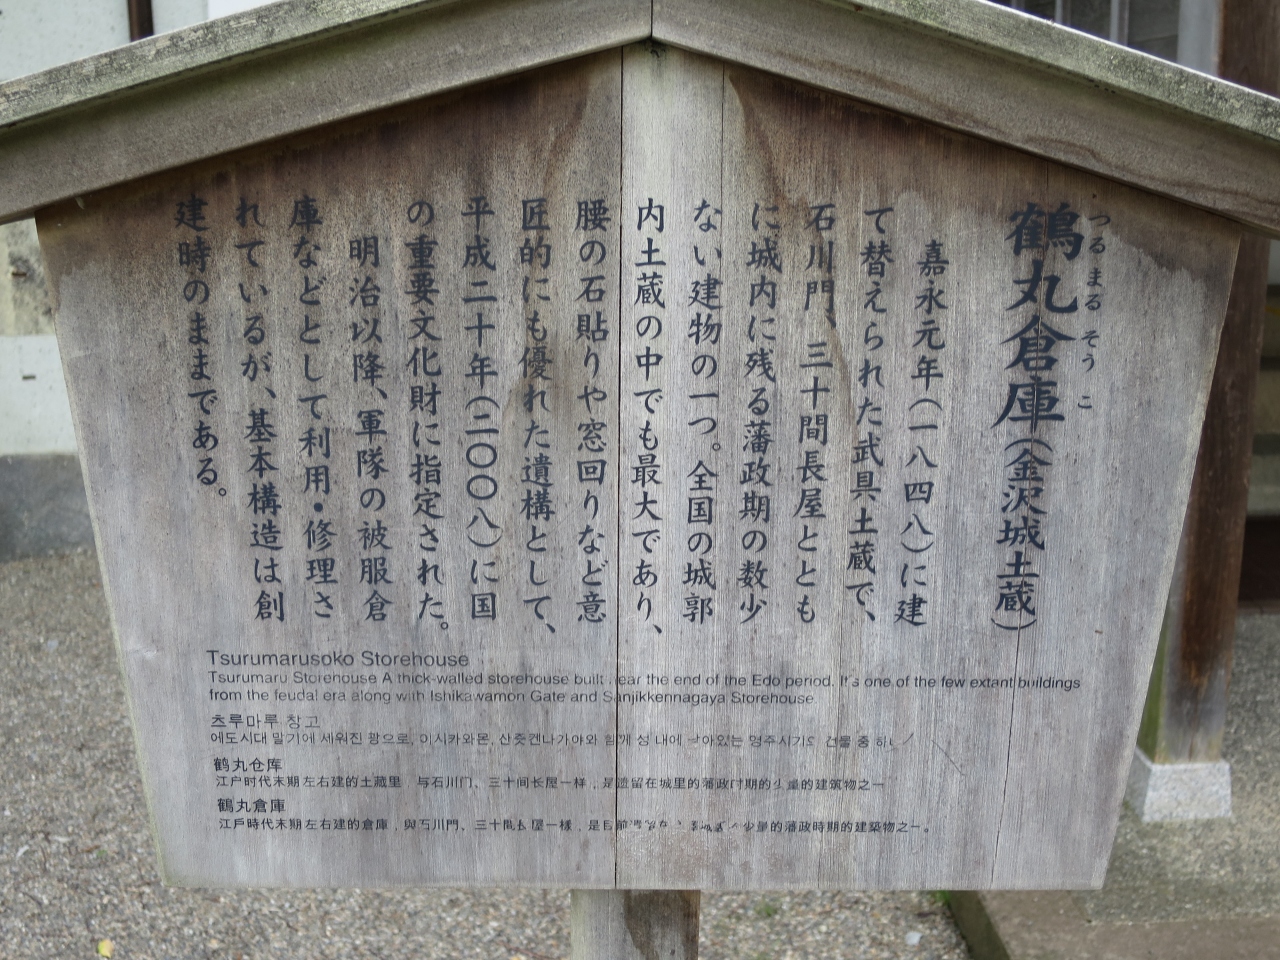 鶴丸倉庫（金沢城土蔵）
つるまるそうこ
嘉永元年（一八四八）に建
て替えられた武具土蔵で、
石川門、三十間長屋ととも
に城内に残る藩政期の数少
ない建物の一つ。全国の城郭
内土蔵の中でも最大であり、
腰の石貼りや窓回りなど意
匠的にも優れた遺構として、
平成二十年（二〇〇八）に国
の重要文化財に指定された。
明治以降、軍隊の被服倉
庫などとして利用・修理さ
れているが、基本構造は創
建時のままである。
Tsurumarusoko Storehouse
Tsurumaru Storehouse A thick-walled storehouse built near the end of the Edo period. It's one of the few extant buildings
from the feudal era along with Ishikawamon Gate and Sanjikkennagaya Storehouse
츠루마루 창고
에도시대 말기에 세워진 광으로, 이시카와몬, 산줏켄나가야와 함께 성 내에 남아있는 영주시기의 건물 중 하나
鹤丸仓库
江户时代末期左右建的土蔵里．与石川门、三十间长屋一样，是遗留在城里的藩政时期的少量的建筑物之一
鶴丸倉庫
江戶時代末期左右建的倉庫，與石川門、三十間長屋一樣，是目前 少量的藩政時期的建築物之一。